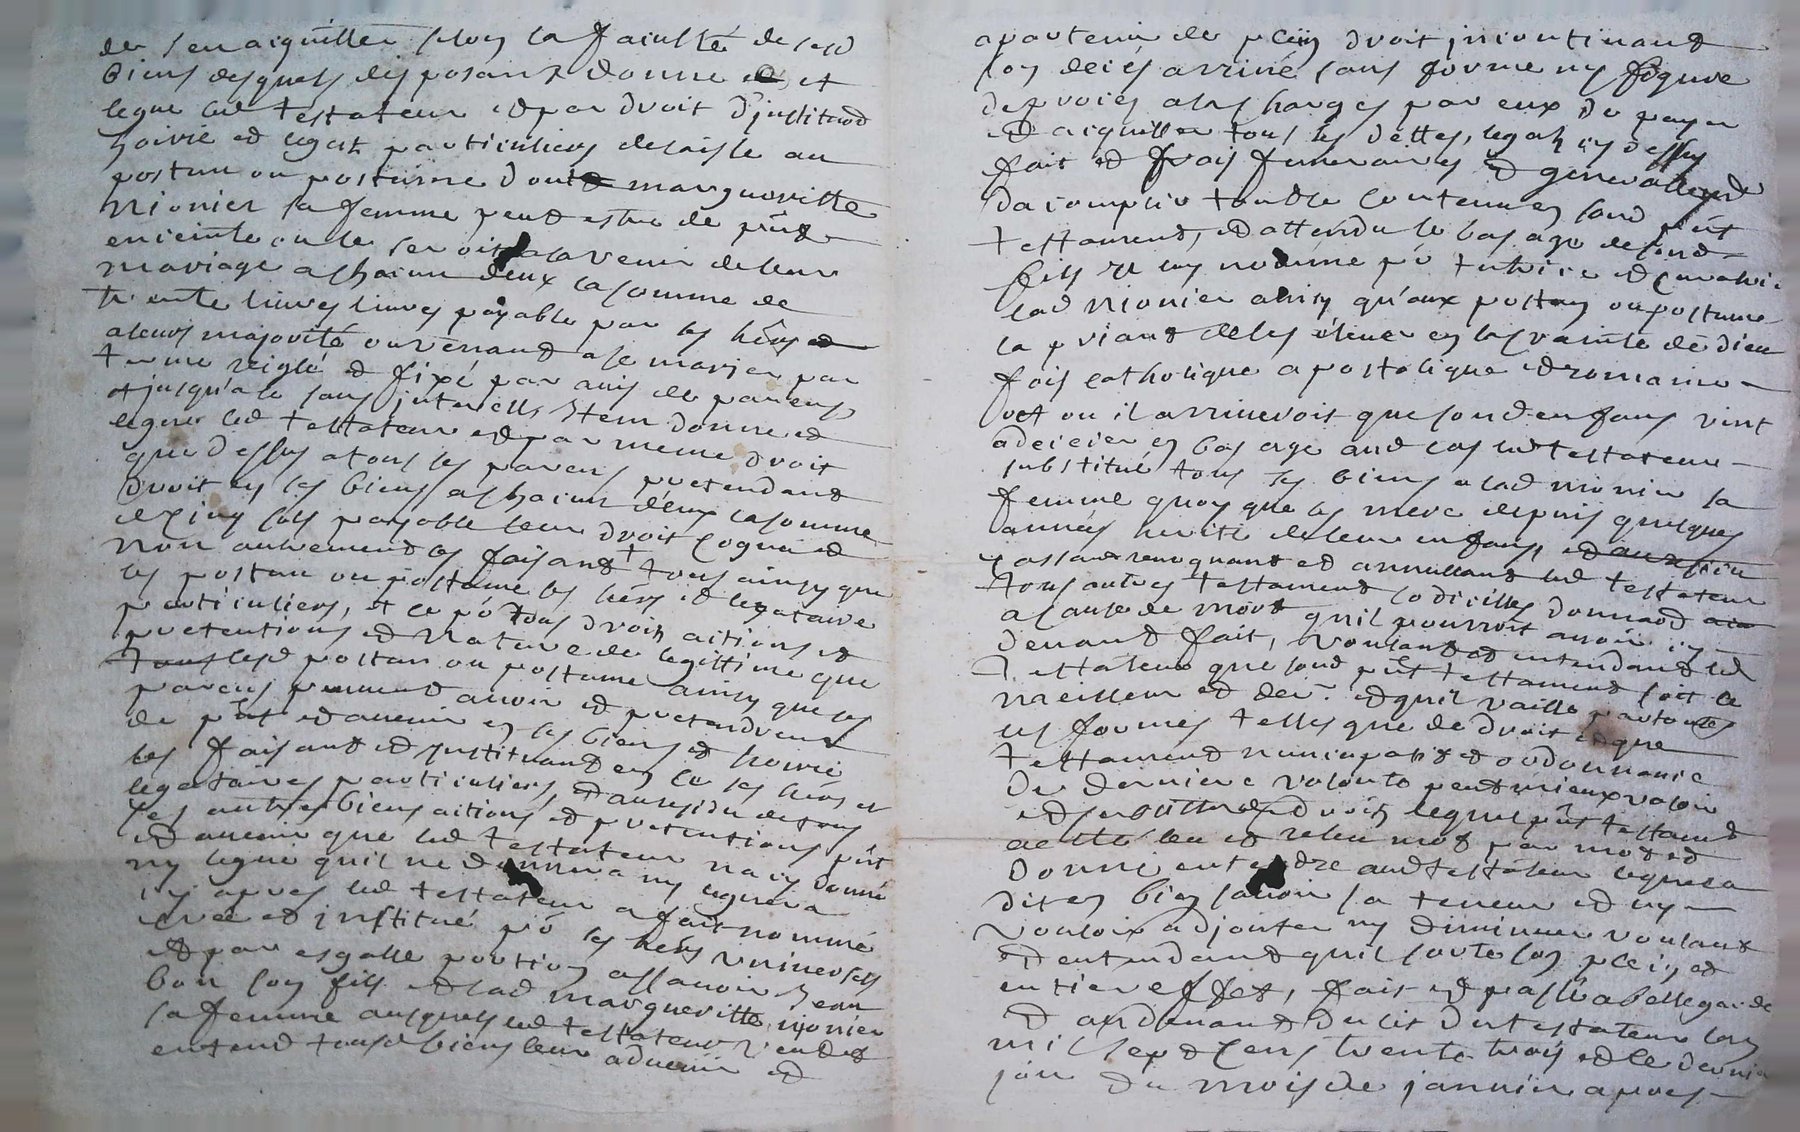 de s'en aiquitter selon la faculté de sesd
biens desquels disposant donne et
legue led testateur et par droit d'institu͠on
hoirie et legat particuliers delaisse au
postun ou postume dont margueritte
nionier sa femme peut estre de pn̄t
enceinte ou le seroit a lavenir de leur
mariage a chacun deux la somme de
trente livres livres payable par les hērs
a leurs majorité ou venant a se marier par
terme reiglé et fixé par avis de parens
et jusqu'a ce sans interells, Item donne et
legue led testateur et par meme droit
que dessus a tous les parens pretendant
droit en ses biens a chacun deux la somme
de sinq sols payable leur droit cognu et
non autrement les faisant tous ainsy que
les postun ou postume ses hērs et legataire
particuliers, et ce po tous droits actions et
pretentions et nature de legittime que
lesd postun ou postume ainsy que ses
parens peuvent avoir et pretendre
de pn̄t et avenir en ses biens et hoirie
les faisant et instituant en ce ses hērs et
legataires particuliers, et au residu de tous
ses autres biens actions et pretentions pn̄t
et avenir que led testateur na cy donné
ny legué quil ne donnera ny leguera
cy apres led testateur a fait nommé
créé et institué po ses hērs universels
et par esgalle portion assavoir Jean
bon son fils et lad marguerittte nionier
sa femme ausquels led testateur veut et
entend tousd biens leur advenir et
apartenir de plein droit incontinant
son deces arrivé sans forme ny figure
de proces a la charges par eux de payer
et aiquitter tous les dettes, legats cy dessus
fait et frais funeraires et generallement
dacomplir tout le contenu en sond pn̄t
testament, et attendu le bas age de sond
fils il luy nomme po tutrice et curatrice
lad nionier ainsy qu'aux postun ou postume
la priant de les élever en la crainte de dieu
fois catholique apostolique et romaine
et ou il arriveroit que sond enfans vint
a deceder en bas age aud cas led testateur
substitué tous ses biens a lad nionier sa
femme quoy que les mere depuis quelques
années herite de leur enfans,
cassant revoquant et annullant led testateur
tous autres testament codicilles donnaon̄
a cause de mort quil pourroit avoir cy
devant fait, voulant et entendant led
testateur que sond pn̄t testament soit le
meilleur et der. et quil vaille par toutes
les formes telles que de droit et que
testament nuncupatif et ordonnance
de derniere volonté peut mieux valoir
et droits lequel pn̄t testament
a esté leu et releu mot par mot et
donné entendre aud testateur lequel a
dit en bien savoir sa teneur et ny
vouloir adjouter ny diminuer voulant
et entendant quil sorte son plein et
entier effet, fait et passé a bellegarde
et au devant du lit dud testateur lan
mil sept cens trente trois et le dernier
jour du mois de janvier apres